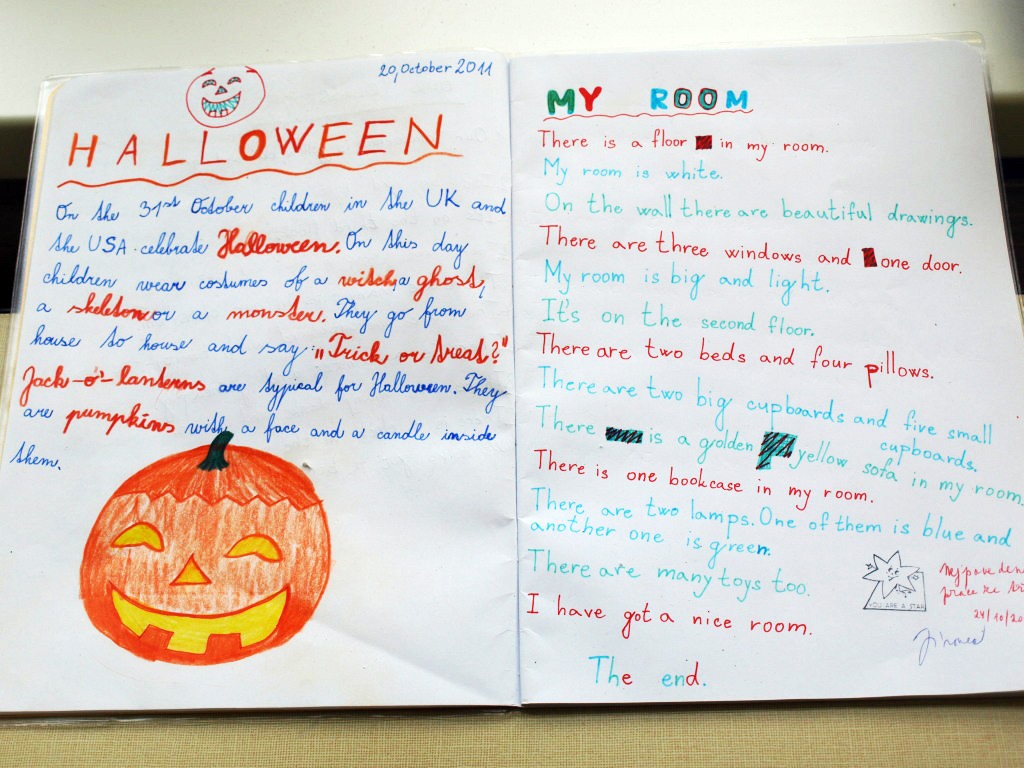 20, October 2011
HALLOWEEN
On the 31st October children in the UK and
the USA celebrate Halloween. On this day
children wear costumes of a witch, a ghost,
a skeleton or a monster. They go from
house to house and say: „Trick or treat?"
Jack-o'-lanterns are typical for Halloween. They
are pumpkins with a face and a candle inside
them.
MY ROOM
There is a floor in my room.
My room is white.
On the wall there are beautiful drawings.
There are three windows and one door.
My room is big and light.
It's on the second floor.
There are two beds and four pillows.
There are two big cupboards and five small
cupboards.
There is a golden yellow sofa in my room.
There is one bookcase in my room.
There are two lamps. One of them is blue and
another one is green.
There are many toys too.
I have got a nice room.
The end.
YOU ARE A STAR
24/10/20